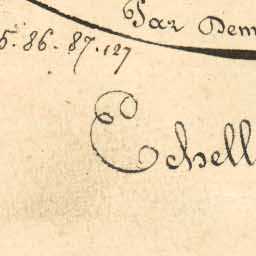 Par Dem
5. 86. 87. 127
Echell